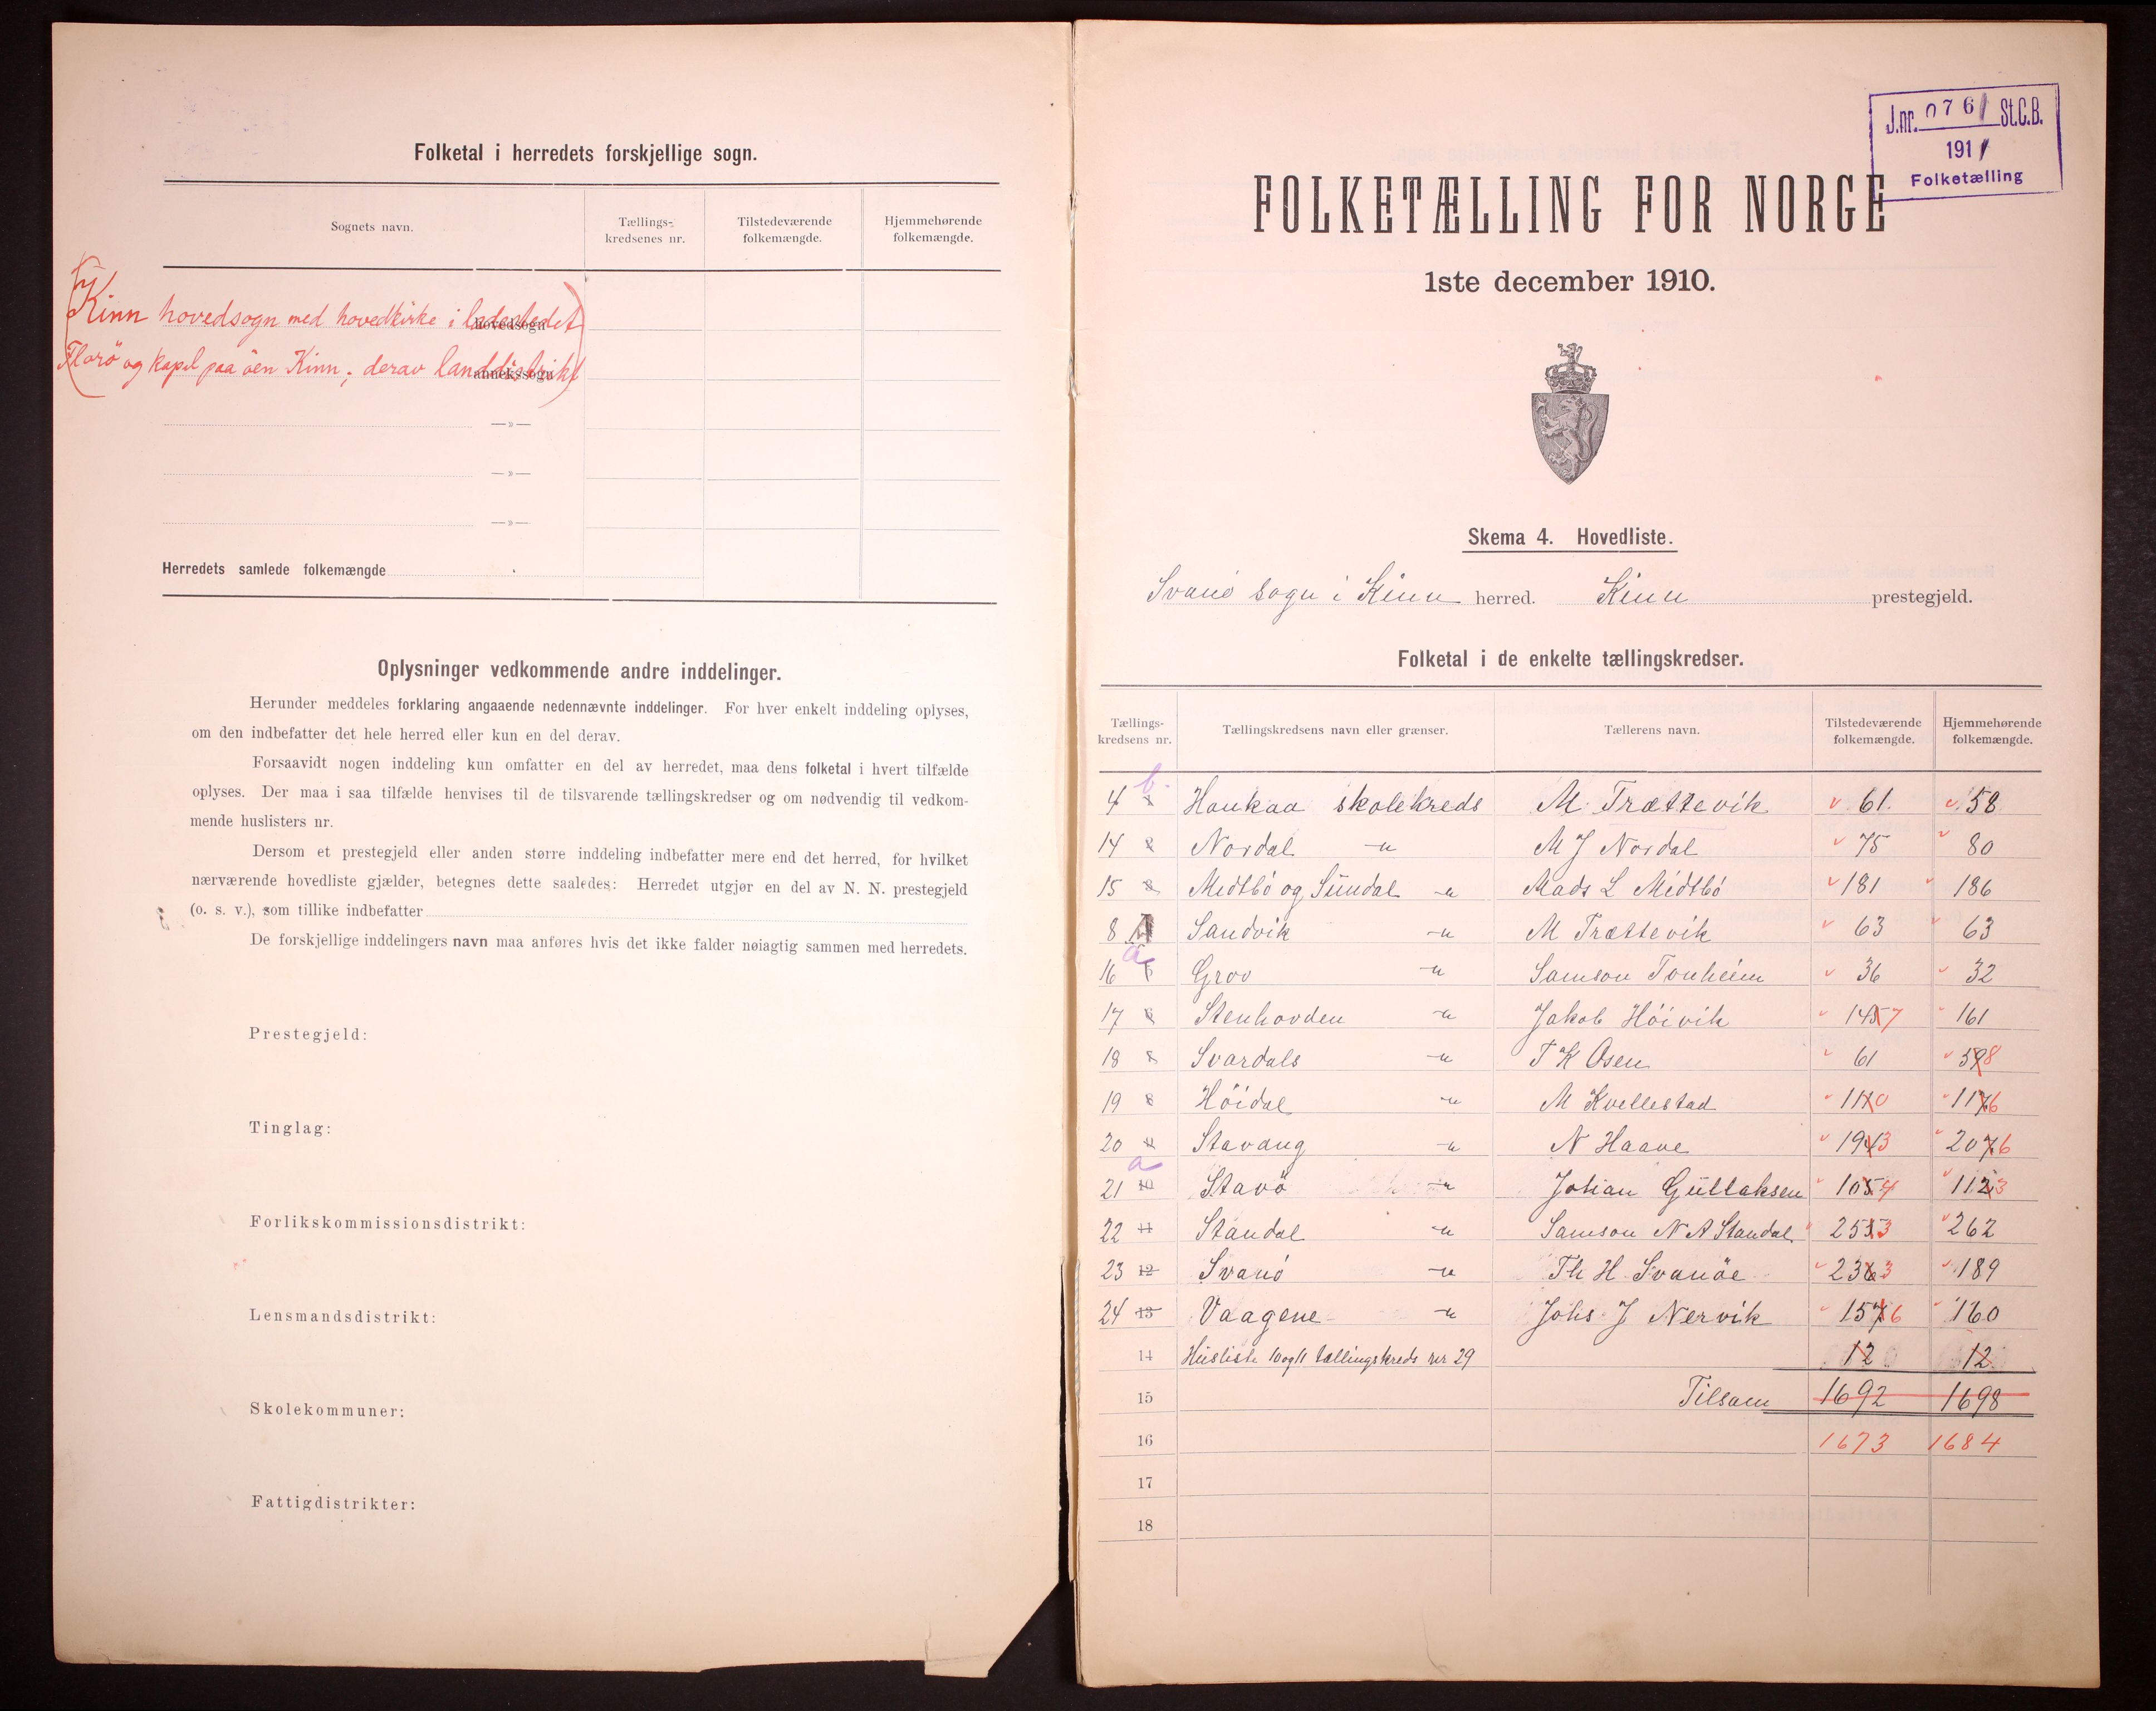 Folketal i herredets forskjellige sogn.
Sognets navn.
Tællings-
kredsenes nr.
Tilstedeværende
folkemængde.
Hjemmehørende
folkemængde.
Kinn hovedsogn med hovedkirke i ladestedet
hovedsogn
Florö og kapel paa öen Kinn; derav landdistrikt
annekssogn
—»—
—»—
—»—
Herredets samlede folkemængde
Oplysninger vedkommende andre inddelinger.
Herunder meddeles forklaring angaaende nedennævnte inddelinger. For hver enkelt inddeling oplyses,
om den indbefatter det hele herred eller kun en del derav.
Forsaavidt nogen inddeling kun omfatter en del av herredet, maa dens folketal i hvert tilfælde
oplyses. Der maa i saa tilfælde henvises til de tilsvarende tællingskredser og om nødvendig til vedkom-
mende huslisters nr.
Dersom et prestegjeld eller anden større inddeling indbefatter mere end det herred, for hvilket
nærværende hovedliste gjælder, betegnes dette saaledes: Herredet utgjør en del av N. N. prestegjeld
(o. s. v.), som tillike indbefatter
De forskjellige inddelingers navn maa anføres hvis det ikke falder nøiagtig sammen med herredets.
Prestegjeld:
Tinglag:
Forlikskommissionsdistrikt:
Lensmandsdistrikt:
Skolekommuner:
Fattigdistrikter:
J.nr. 0761 St.C.B.
1911
Folketælling
FOLKETÆLLING FOR NORGE
1ste december 1910.
Skema 4. Hovedliste.
Svanö sogn i Kinn herred. Kinn prestegjeld.
Folketal i de enkelte tællingskredser.
Tællings-
kredsens nr.
Tællingskredsens navn eller grænser.
Tællerens navn.
Tilstedeværende
folkemængde.
Hjemmehørende
folkemængde.
4 b. Haukaa skolekreds M. Trættevik 61. 58
14 2 Nordal -"- M J Nordal 75 80
15 3 Midtbö og Sundal -"- Mads L Midtbö 181 186
8 Sandvik -"- M Trættevik 63 63
16 a Grov -"- Samson Tonheim 36 32
17 6 Stenhovden -"- Jakob Höivik 1457 161
18 7 Svardals -"- T K Osen 61 598
19 8 Höidal -"- M Kvellestad 1110 1176
20 Stavang -"- N Haave 1943 2076
21 a 10 Stavö -"- Johan Gullaksen 1054 1123
22 11 Standal -"- Samson N A Standal 2553 262
23 12 Svanö -"- Th H Svanöe 2363 189
24 13 Vaagene -"- Johs J Nervik 1576 160
14 Husliste 10 og 11 tællingskreds nr 29 12 12
15 Tilsam 1692 1698
16 1673 1684
17
18